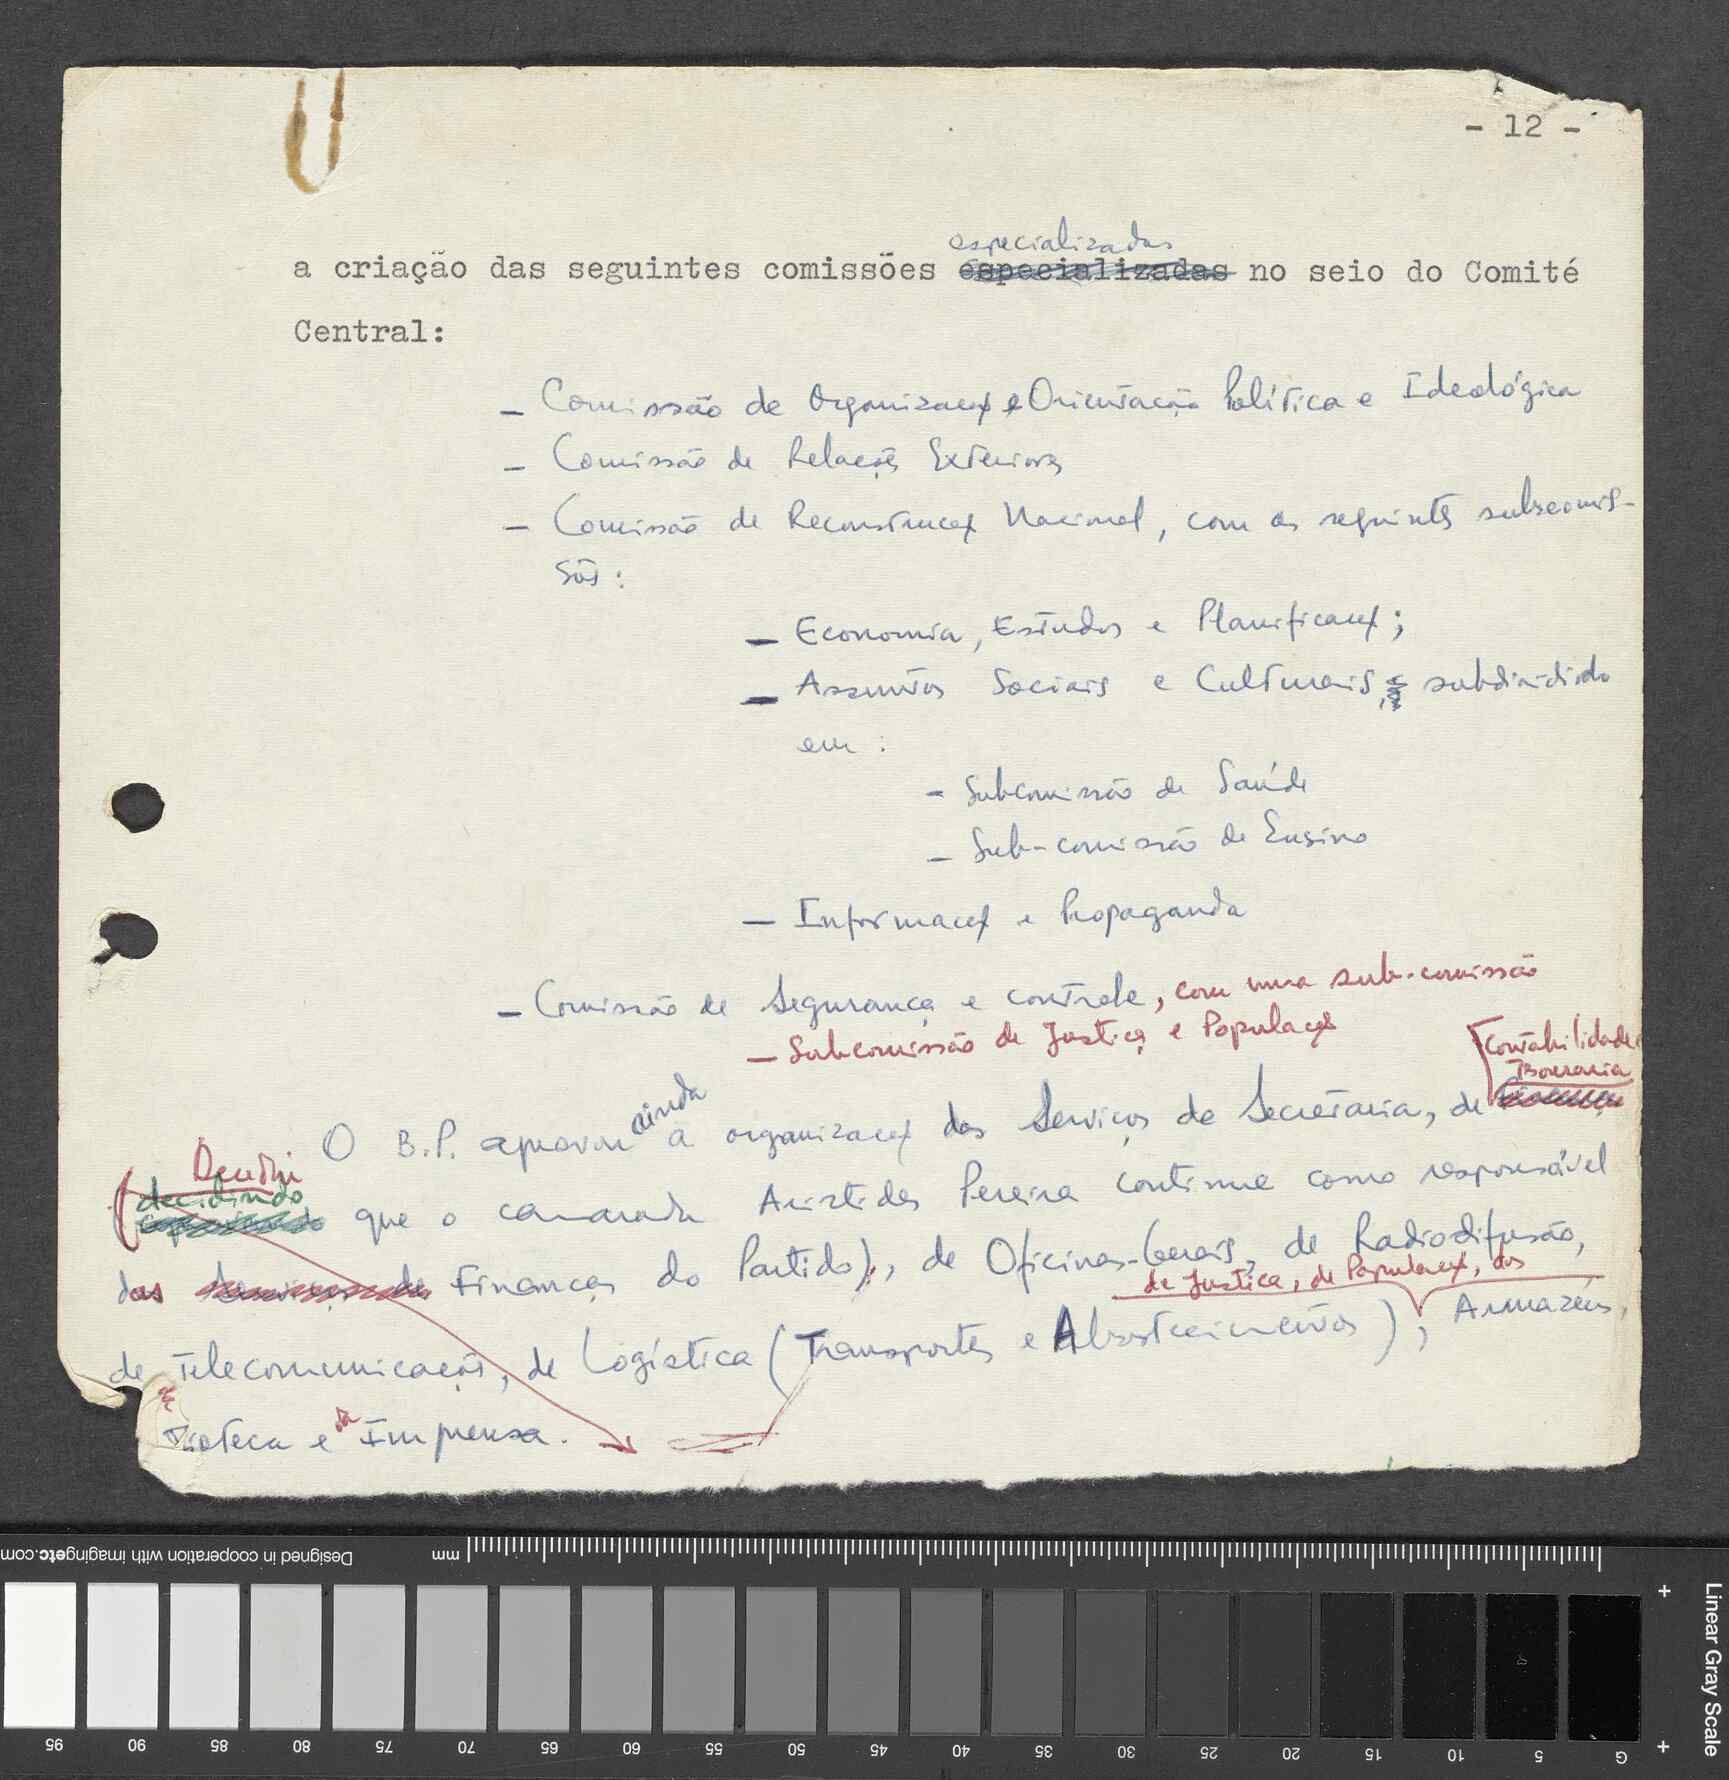 - 12 -
especializadas
a criação das seguintes comissões especializadas no seio do Comité
Central:
- Comissão de Organização e Orientação Política e Ideológica
- Comissão de Relações Exteriores
- Comissão de Reconstrução Nacional, com as seguintes subcomis-
sões:
- Economia, Estudos e Planificação;
- Assuntos Sociais e Culturais, subdividido
em :
- Subcomissão de Saúde
- Sub-comissão de Ensino
- Informação e Propaganda
- Comissão de Segurança e controle, com uma sub-comissão
- Subcomissão de Justiça e População
Contabilidade e
Tesouraria
O B.P. aprovou ainda a organização dos Serviços de Secretaria, de
Decidiu
decidindo que o camarada Aristides Pereira continue como responsável
das Finanças do Partido), de Oficinas-Gerais, de Radiodifusão,
de Justiça, de População, dos
de Telecomunicações, de Logística (Transportes e Abastecimentos), Armazéns,
e da Imprensa.
Designed in cooperation with imagingetc.com
mm
95 90 85 80 75 70 65 60 55 50 45 40 35 30 25 20 15 10 5 G
Linear Gray Scale